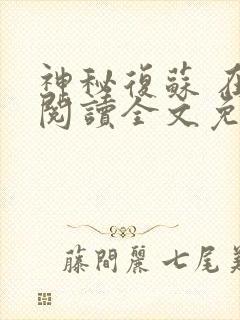 神秘復蘇 在
閱讀全文免
藤間麗 七尾美